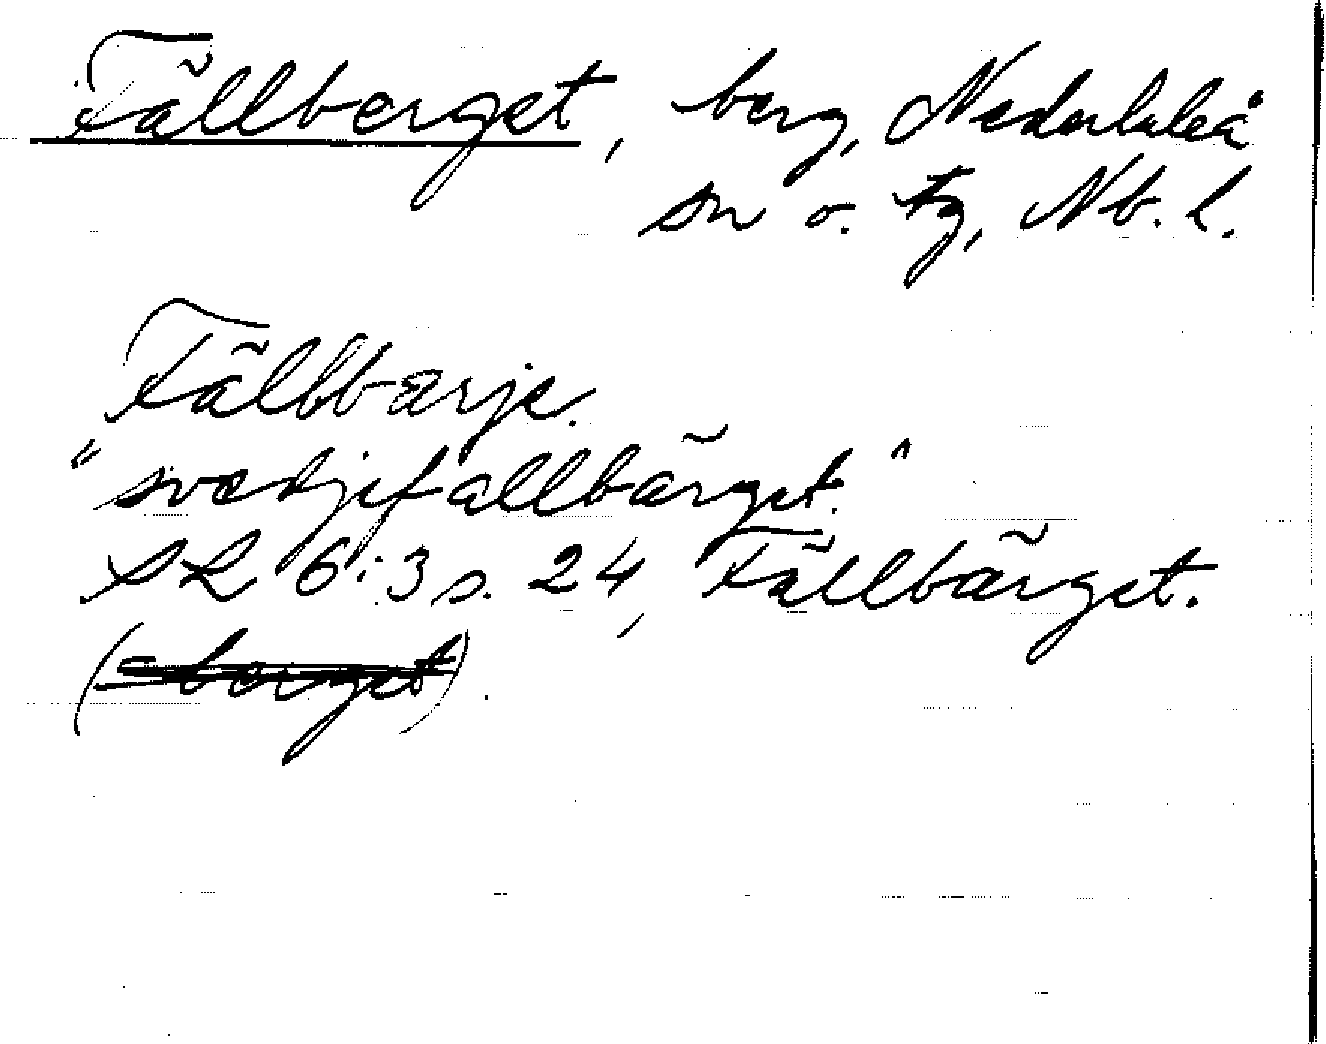 Fällberget, berg, Nederluleå
sn o. tg, Nb. l.
Fällbarje.
"svedjefallbärget."
SL 6:3 s. 24, Fällbärget.
(-berget).